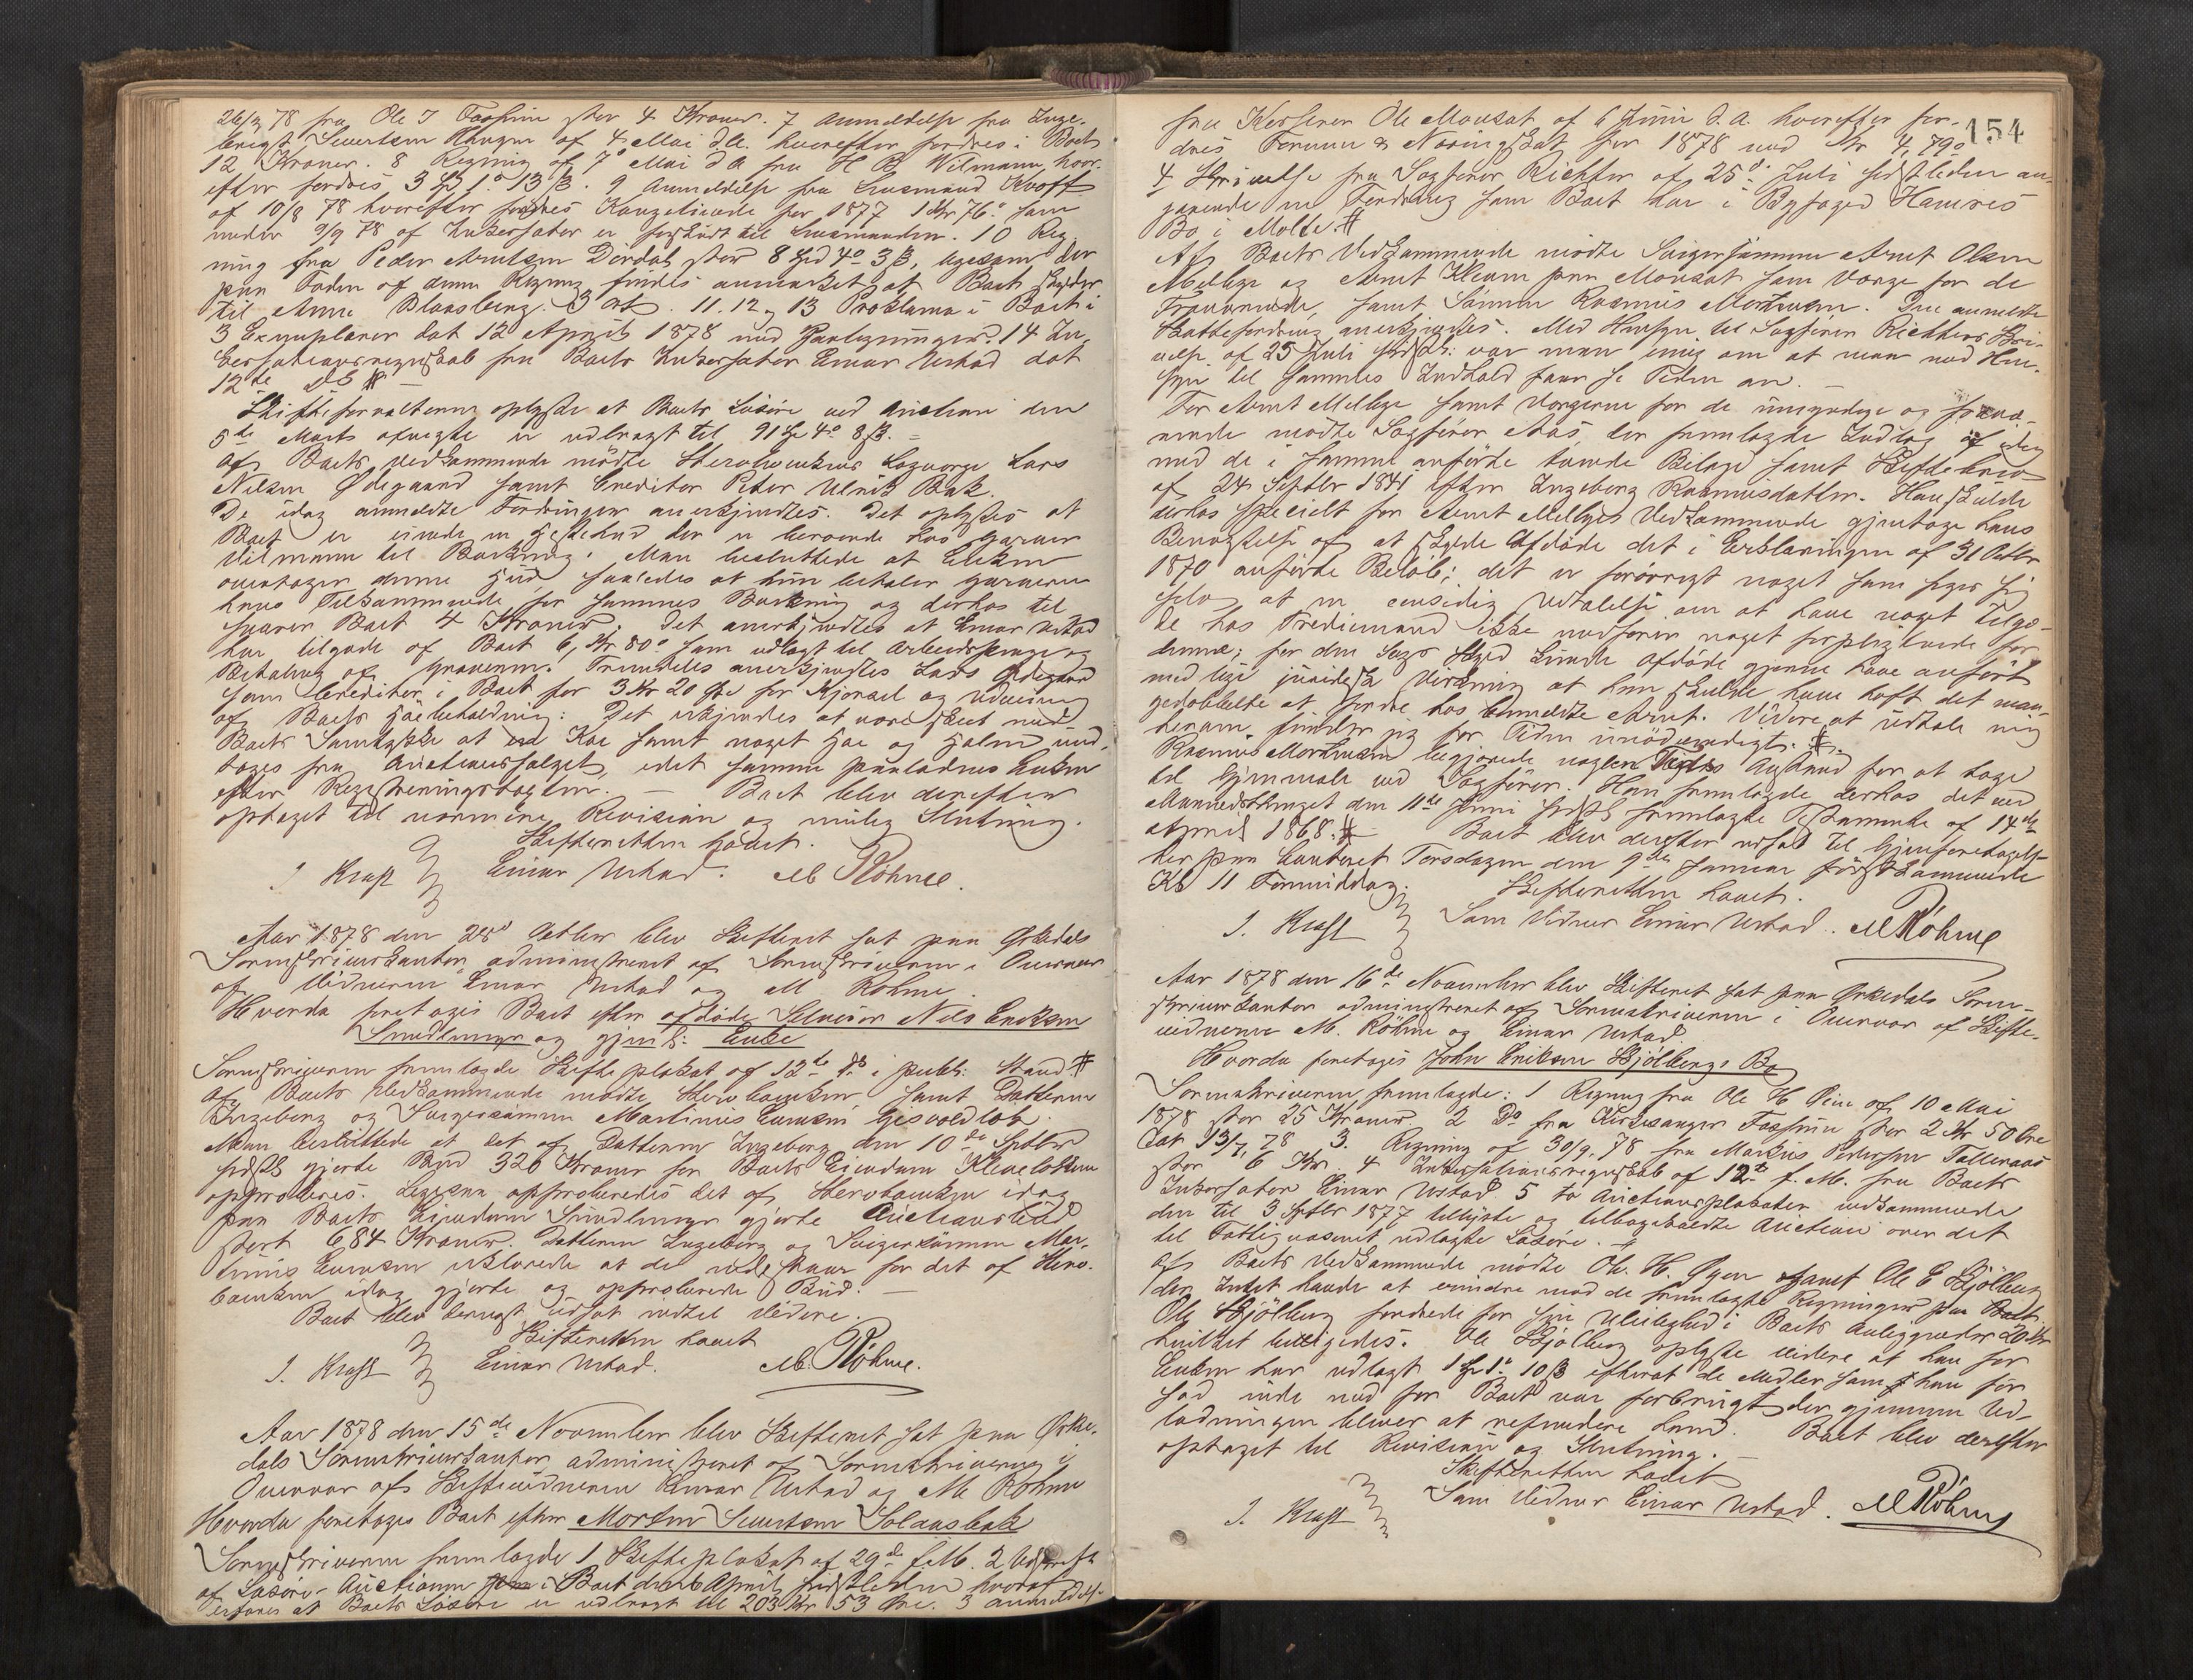 26/3 78 fra Ole J Fossum stor 4 Kroner. 7 Anmeldelse fra Inge-
brigt Sivertsen Haugen af 4 Mai d.A. hvorefter fordres i Boet
12 Kroner. 8 Regning af 7de Mai d A fra H B Wilmann, hvor-
efter fordres 3 Spd 1 13 ß. 9 Anmeldelse fra Lensmand Krofft
af 10/8 78 hvorefter fordres for 1877 1 Kr 76 som
under 9/9 78 af Inkassator er til Lensmanden. 10 Reg-
ning fra Peder Arntsen Dørdal stor 8 Spd 4 3 ß, ligesom der
paa Foden af denne Regning findes anmærket at Boet skylder
til Anne Blaasberg 3 Ort. 11. 12 og 13 Proklama i Boet i
3 Exemplarer dat 12 April 1878 med Paategninger. 14 In-
cassationsregnskab fra Boets Inkassator Einar Ustad dat
12te ds #
Skifteforvalteren oplyste at Boets Løsøre ved Auction den
5te Marts er udbragt til 91 Sp 4 8 ß. –
Af Boets Vedkommende mødte Stervbenkens Lagværge Lars
Nilsen Ødegaard samt Creditor Peter Ulrik Bak.
De idag anmeldte Fordringer anerkjendtes. Det oplystes at
Boet er eiende en hud der er beroende hos Garver
Wilmann til Barkning. Man besluttede at Enken
overtager denne Hud saaledes at hun betaler Garveren
hans Tilkommende for sammes Barkning og derhos til
svarer Boet 4 Kroner. Det anerkjendtes at Einar Ustad
har tilgode af Boet 6 Kr 80 som udlagt til Arbeidspenge og
Betaling af Graveren. Fremdeles anerkjendtes Lars Ødegaard
som Creditor i Boet for 3 Kr 20 Øre for Kjørsel og Udveining
af Boets Høbeholdning. Det erkjendes at være skeet med
Boets Samtykke at en Ko samt noget Hø og Halm und-
toges fra Auctionssalget, idet samme overlodes Enken
efter Registreringstaxten. – Boet blev derefter
optaget til nærmere Revision og mulig Slutning.
Skifteretten hævet.
J. Kraft Einar Ustad. M Röhme.
Aar 1878 den 28de Octbr blev Skifteret sat paa Orkedals
Sorenskriverkontor administreret af Sorenskriveren i Overvær
af Vidnerne Einar Ustad og M Röhme.
Hvorda foretoges Boet efter afdøde Selveier Nils Eriksen
Smedlunge og gjenl: Enke
Sorenskriveren fremlagde Skifteplakat af 12te ds i publ: Stand #
Af Boets Vedkommende mødte Stervbenken samt Datteren
Ingeborg og Svigersønnen Martinus Gisvold
Man besluttede at det af Datteren Ingeborg den 10de Septbr
sidstl gjorte Bud 320 Kroner for Boets Eiendom
approberes. Ligesaa approberedes det af Stervbenken idag
paa Boets Eiendom gjorte Auctionsbud
stort 684 Kroner. Datteren Ingeborg og Svigersønnen Mar-
tinus erklærede at de vedstaar for det af Sterv-
benken idag gjorte og approberede Bud. –
Boet blev derpaa udsat indtil Videre.
Skifteretten hævet
J. Kraft Einar Ustad. M. Röhme.
Aar 1878 den 15de November blev Skifteret sat paa Orke-
dals Sorenskriverkontor, administreret af Sorenskriveren i
Overvær af Skiftevidnerne Einar Ustad og M Röhme
Hvorda foretoges Boet efter Morten Sivertsen Solaasbak
Sorenskriveren fremlagde 1 Skifteplakat af 29de f.M. 2 Udskrift
af Løsøre-Auctionen i Boet den 6 April sidstleden hvoraf
erfares at Boets Løsøre er udbragt til 203 Kr 53 Øre. 3 Anmeldelse
154
fra Kasserer Ole Monsat af 6 Juni d.A. hvorefter for-
dres Formue & Næringsskat for 1878 med Kr 4,79
4 Skrivelse fra Sagfører Richter af 25de Juli sidstleden an-
gaaende en Fordring som Boet har i Byfoged Hansens
Bo i Molde. #
Af Boets Vedkommende mødte Svigersønnen Arnt Olsen
Mellige og Arnt paa Monsat som Værge for de
Fraværende, samt Sønnen Rasmus Mortensen. Den anmeldte
Skattefordring anerkjendtes. Med Hensyn til Sagfører Richters Skri-
velse af 25 Juli sidstl: var man enig om at man med Hen-
syn til sammes Indhold saar se Tiden an. –
For Arnt Mellige samt Værgerne for de umyndige og fravæ-
rende mødte Sagfører Aas, der fremlagde Indlæg af idag
med de i samme anførte Bilage samt Skiftebrev
af 24 Septbr 1841 efter Ingeborg Rasmusdatter. Han skulde
derhos specielt for Arnt Melliges Vedkommende gjentage hans
Benægtelse af at skylde Afdøde det i Erklæringen af 31 Octbr
1870 anførte Beløb; det er forøvrigt noget som siger sig
selv at en eensidig Udtalelse om at have noget tilgo-
de hos Trediemand ikke medfører noget forpligtende for
denne; for den Sags Skyld kunde Afdøde gjerne have anført
med lige juridisk Virkning at han skulde have havt det man-
gedobbelte at fordre hos bemeldte Arnt. Videre at udtale mig
herom finder jeg for Tiden unødvendigt. #.
Rasmus Mortensen begjærede nogen Tids Anstand for at tage
til Gjenmæle ved Sagfører. Han fremlagde derhos det ved
Mandedskinget den 11te Juni sidstl fremlagte Testamente af 14de
April 1868. # Boet blev derefter udsat til Gjenforetagelse
her paa Contoret Torsdagen den 9de Januar førstkommende
Kl 11 Formiddag. Skifteretten hævet.
J. Kraft Som Vidner Einar Ustad. M Röhme
Aar 1878 den 16de November blev Skifteret sat paa Orkedals Soren-
skriverkontor administreret af Sorenskriveren i Overvær af Skifte-
vidnerne M. Röhme og Einar Ustad.
Hvorda foretoges John Eriksen Skjølbergs Bo
Sorenskriveren fremlagde: 1 Regning fra Ole H Øien af 10 Mai
1878 stor 25 Kroner. 2 Do fra Kirkesanger Fossum stor 2 Kr 50 Øre
Dat 13/7 78 3. Regning af 30/9. 78 fra Markus Pedersen
stor 6 Kr. 4 Inkassationsregnskab af 12te f.M. fra Boets
Inkassator Einar Ustad. 5 to Auctionsplakater vedkommende
den til 3 Septbr 1877 tillyste og tilbagekaldte Auction over det
til Fattigvæsenet udlagte Løsøre. #
Af Boets Vedkommende mødte Ole H. Øyen samt Ole E Skjølberg
der Intet havde at erindre mod de fremlagte Regninger paa Boet
Ole Skjølberg fordrede for sin Uleilighed i Boets Anliggender 20 Kr
hvilket bevilgedes. Ole Skjølberg oplyste videre at han for
Enken har udlagt 1 Sp 1 10 ß efterat de Midler som han før
sad inde med for Boet var forbrugt der gjennem Ud-
lodningen bliver at refundere ham. Boet blev derefter
optaget til Revision og Slutning. –
Skifteretten hævet
J. Kraft Som Vidner Einar Ustad. M Röhme